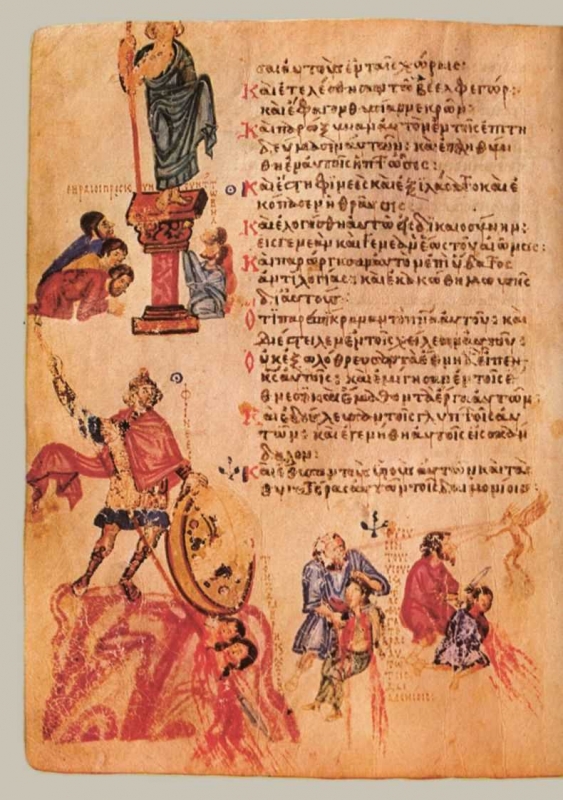 σαι αὐτοὺς ἐν ταῖς χώραις:
Καὶ ἐτελέσθησαν τῷ Βεελφεγώρ:
καὶ ἔφαγον θυσίας νεκρῶν:
Καὶ παρώξυναν αὐτὸν ἐν τοῖς ἐπιτη
δεύμασιν αὐτῶν: καὶ ἐπληθύν
θη ἐν αὐτοῖς ἡ πτῶσις:
Καὶ ἔστη Φινεὲς καὶ ἐξιλάσατο καὶ ἐ
κόπασεν ἡ θραῦσις:
Καὶ ἐλογίσθη αὐτῷ εἰς δικαιοσύνην:
εἰς γενεὰν καὶ γενεὰν ἕως τοῦ αἰῶνος:
Καὶ παρώργισαν αὐτὸν ἐπὶ ὕδατος
ἀντιλογίας: καὶ ἐκακώθη Μωυσῆς
δι' αὐτούς:
Ὅτι παρεπίκραναν τὸ πνα αὐτοῦ: καὶ
διέστειλεν ἐν τοῖς χείλεσιν αὐτοῦ:
Οὐκ ἐξωλόθρευσαν τὰ ἔθνη ἃ εἶπεν
κς αὐτοῖς: καὶ ἐμίγησαν ἐν τοῖς ἔ
θνεσιν καὶ ἔμαθον τὰ ἔργα αὐτῶν:
Καὶ ἐδούλευσαν τοῖς γλυπτοῖς αὐ
τῶν: καὶ ἐγενήθη αὐτοῖς εἰς σκάν
δαλον:
Καὶ ἔθυσαν τοὺς υἱοὺς αὐτῶν καὶ τὰς
θυγατέρας αὐτῶν τοῖς δαιμονίοις: